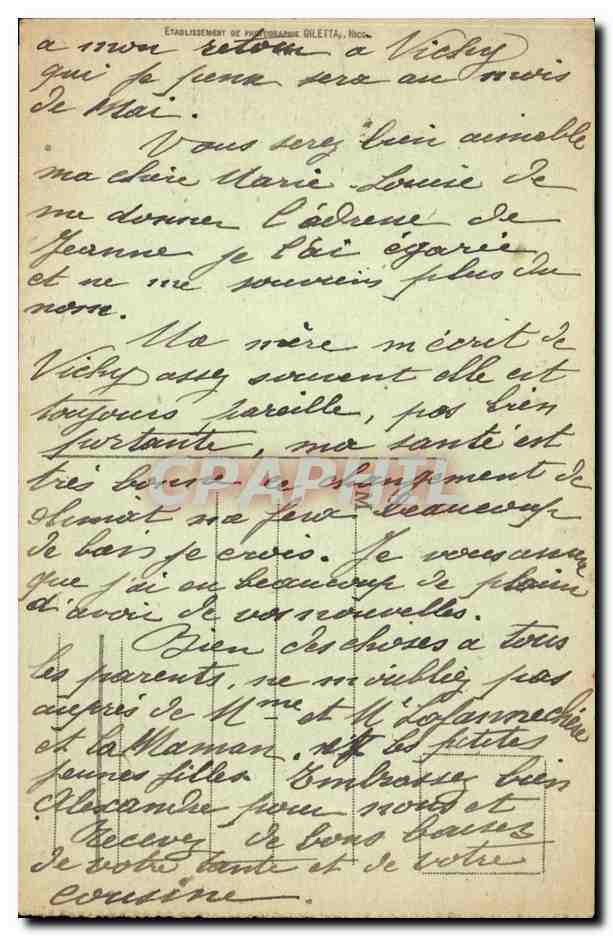 ETABLISSEMENT DE PHOTOGRAPHIE GILETTA, NICE
a mon retour a Vichy
qui je pense sera au mois
de Mai.
Vous serez bien aimable
ma chère Marie-Louise de
me donner l'adresse de
Jeanne je l'ai égarée
et ne me souviens plus du
nom.
Ma mère m'écrit de
Vichy assez souvent elle est
toujours pareille, pas bien
portante, ma santé est
très bonne ce changement de
climat me fera beaucoup
de bien je crois. Je vous assure
que j'ai eu beaucoup de plaisir
d'avoir de vos nouvelles.
Bien des choses a tous
les parents, ne m'oubliez pas
auprès de Mme et Mr
et la Maman, et les petites
jeunes filles. Embrassez bien
Alexandre pour nous et
Recevez de bons baisers
de votre tante et de votre
cousine.
CPARAMA